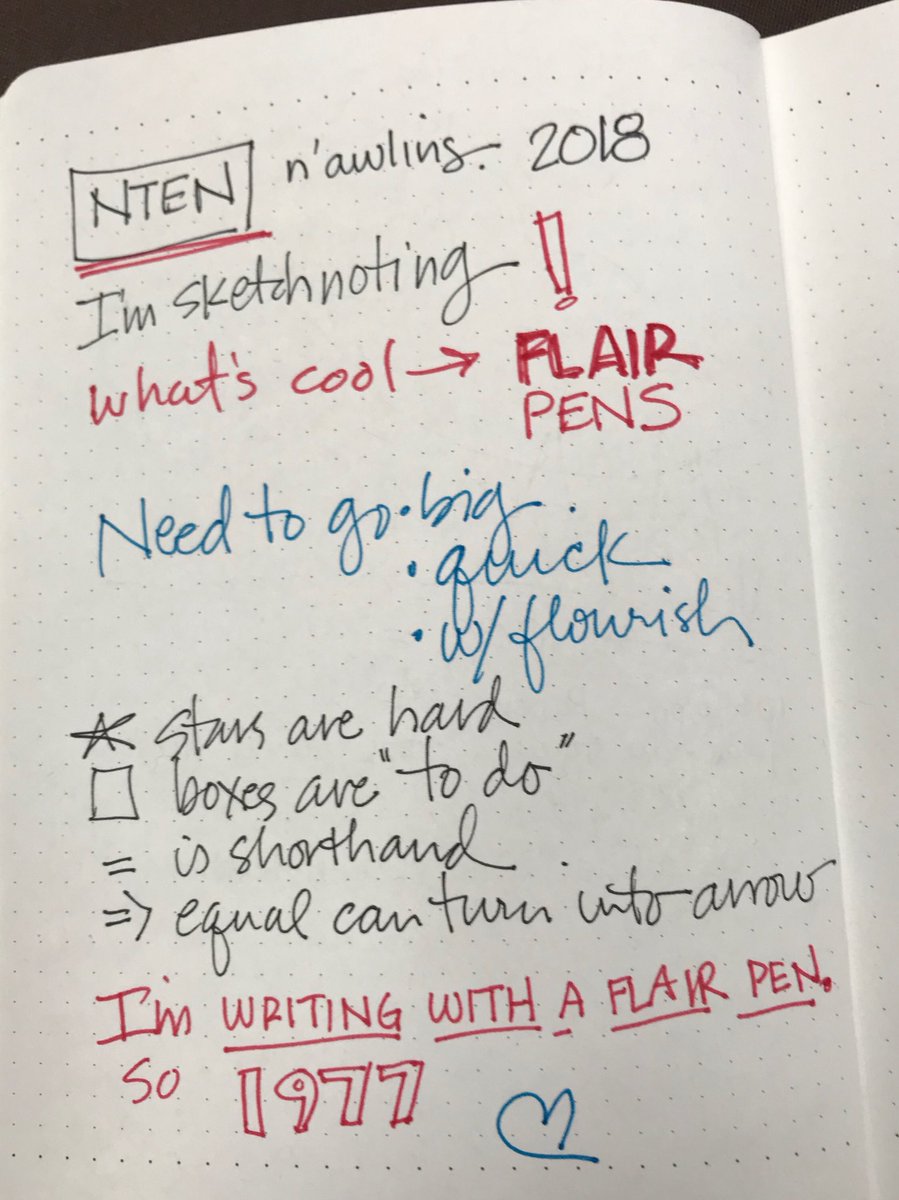 NTEN n'awlins. 2018
I'm sketchnoting !
what's cool → FLAIR
PENS
Need to go • big
• quick
• w/ flourish
☆ stars are hard
□ boxes are "to do"
= is shorthand
=> equal can turn into arrow
I'm WRITING WITH A FLAIR PEN.
So 1977 ♡